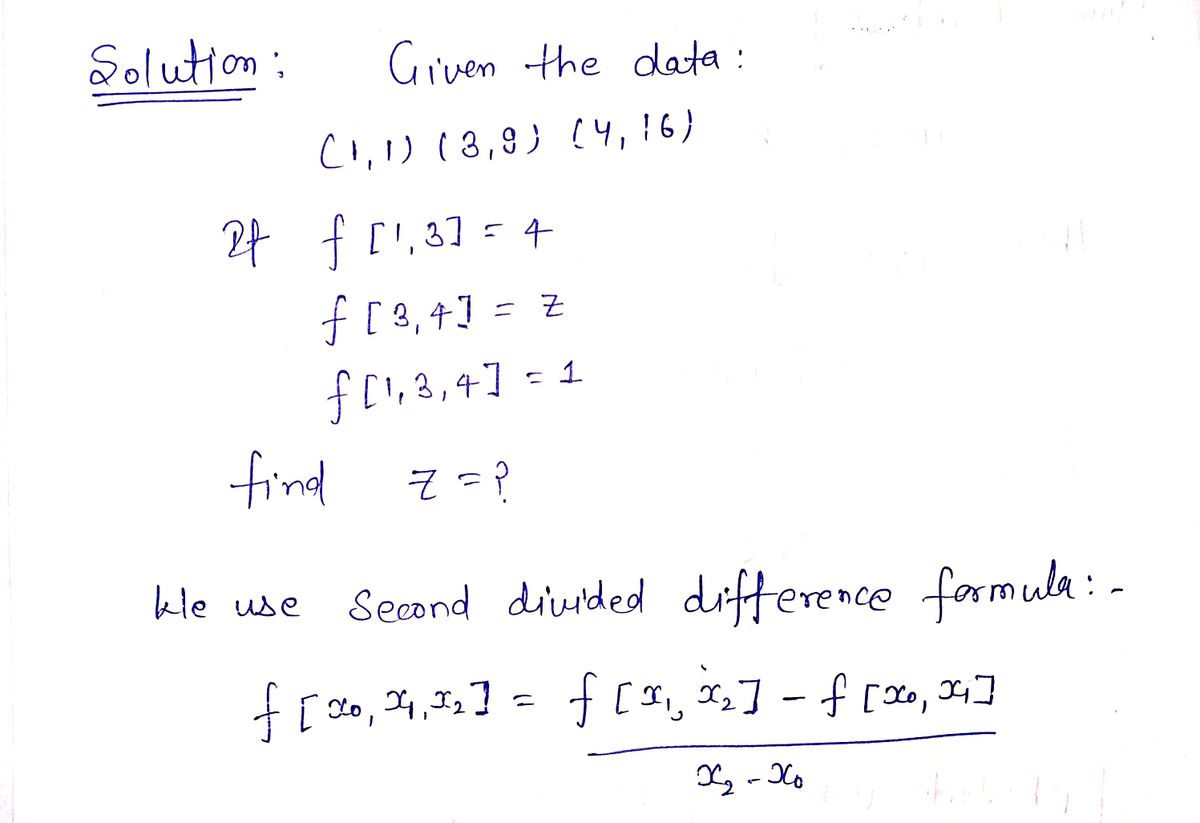 Solution: Given the data:
(1,1) (3,9) (4,16)
If f[1,3] = 4
f[3,4] = z
f[1,3,4] = 1
find z = ?
We use Second divided difference formula:-
f[x₀, x₁, x₂] = f[x₁, x₂] - f[x₀, x₁]
x₂ - x₀